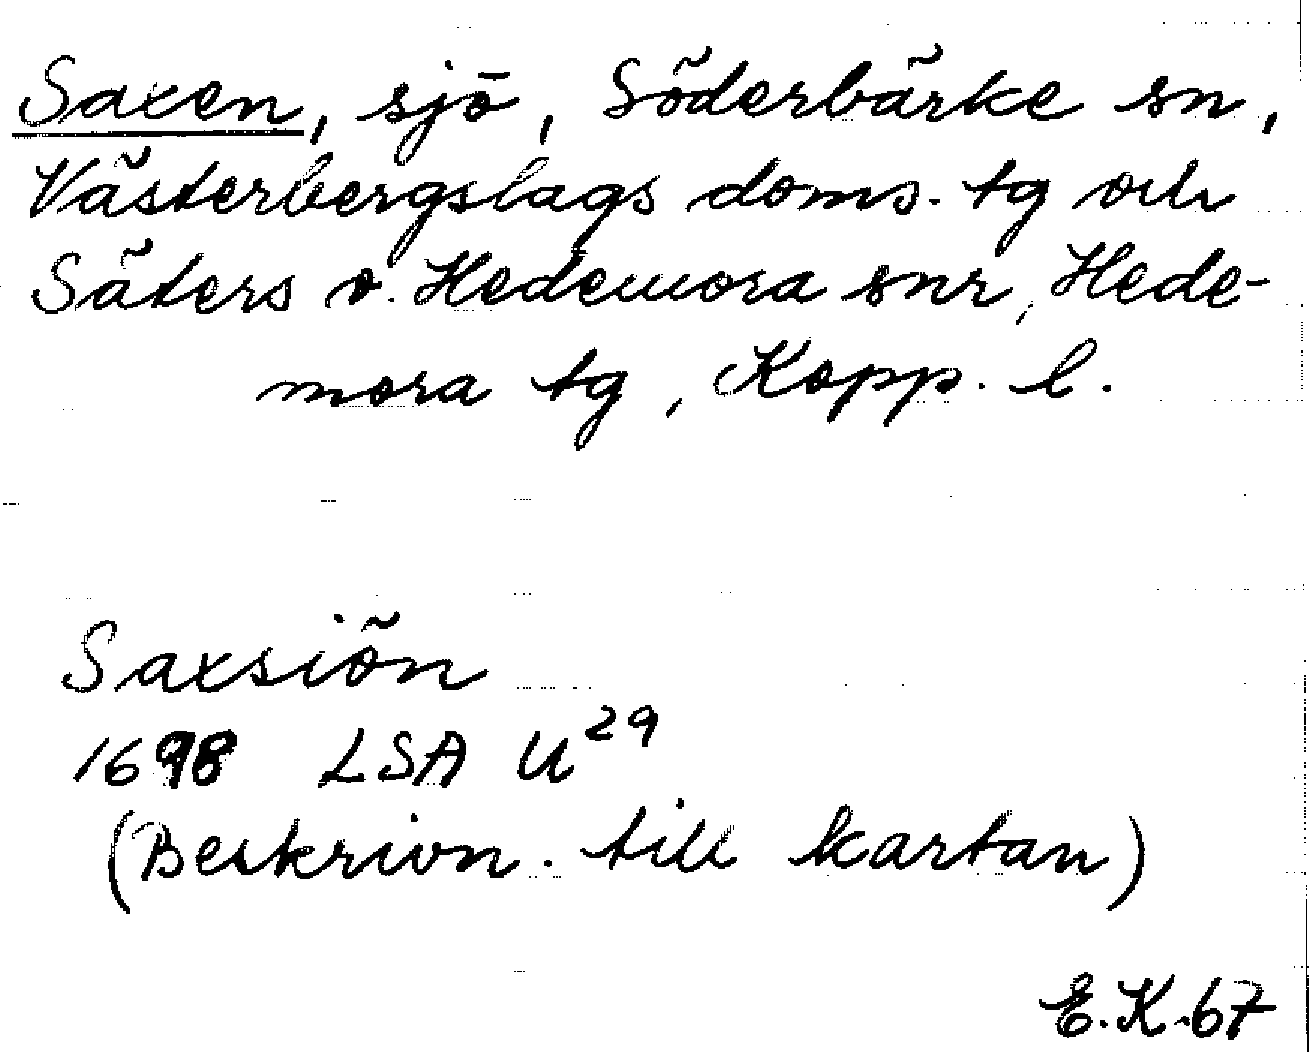 Saxen, sjö, Söderbärke sn,
Västerbergslags doms. tg och
Säters o. Hedemora snr, Hede-
mora tg, Kopp. l.
Saxsiön
1698 LSA U²⁹
(Beskrivn. till kartan)
E.K.67